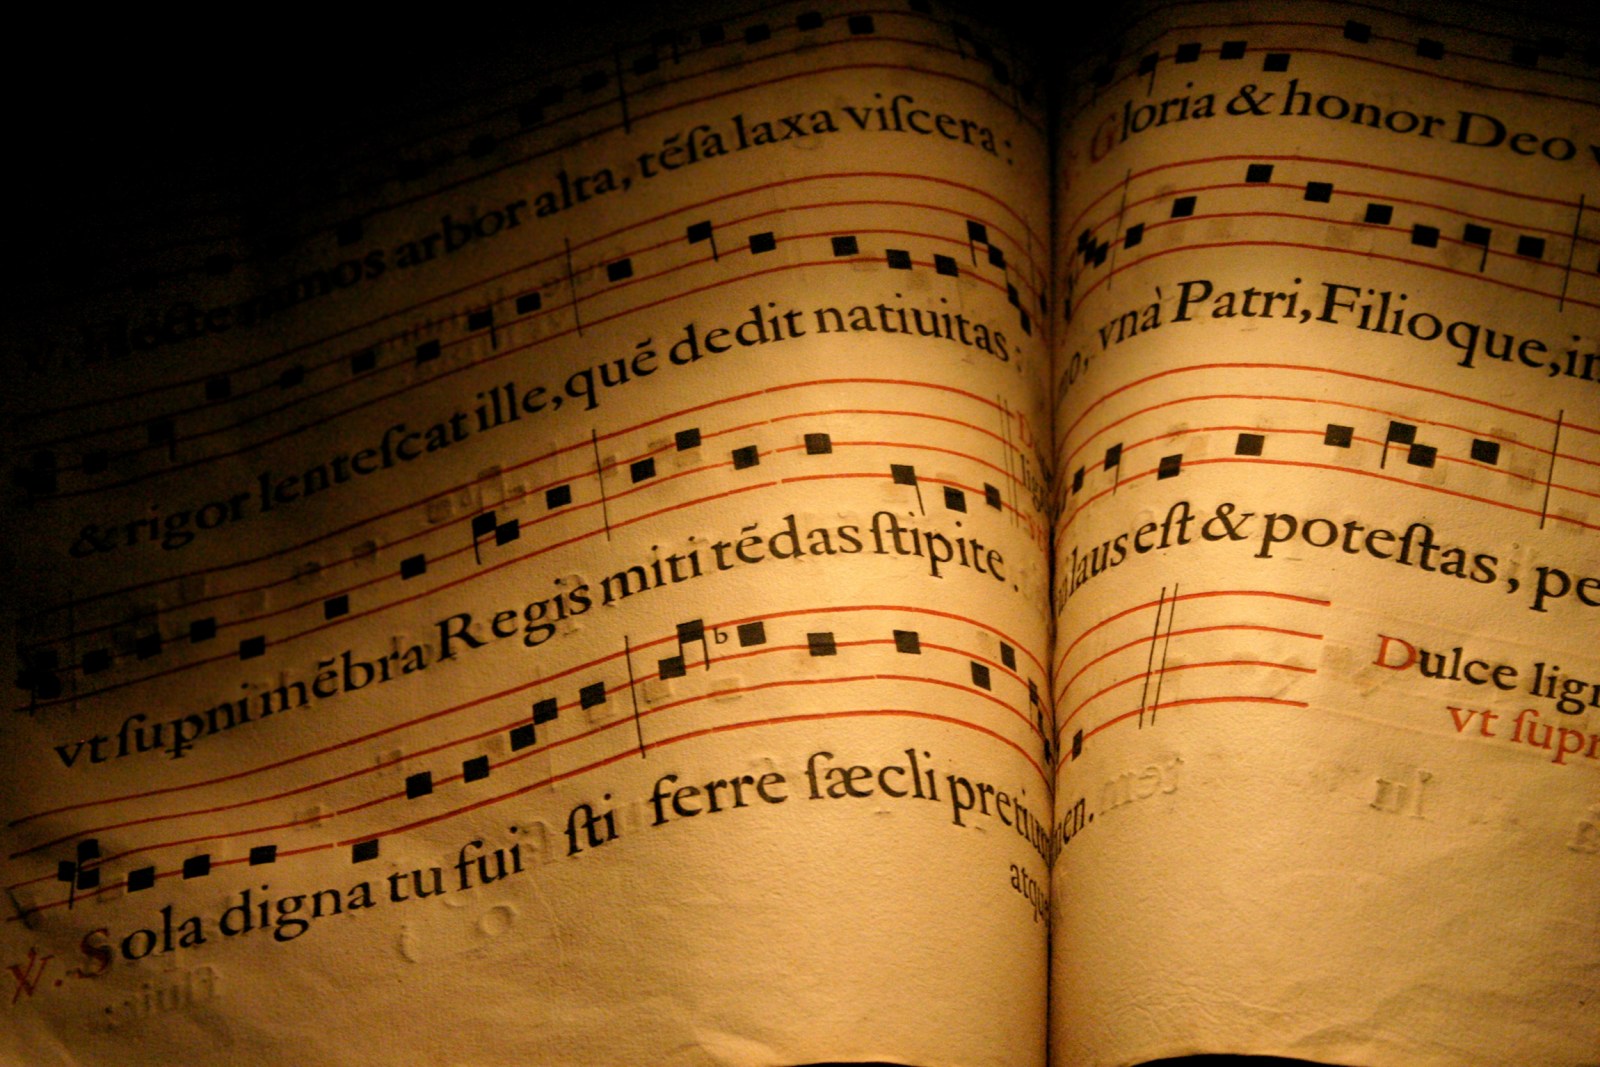 ℣. Flecte ramos arbor alta, tēſa laxa viſcera:
& rigor lenteſcat ille, quē dedit natiuitas:
vt ſupni mēbra Regis miti tēdas ſtipite.
℣. Sola digna tu fui ſti ferre ſæcli pretium
atque
Gloria & honor Deo
vnà Patri, Filioque, in
laus eſt & poteſtas, pe
en.
Dulce lign
vt ſupr